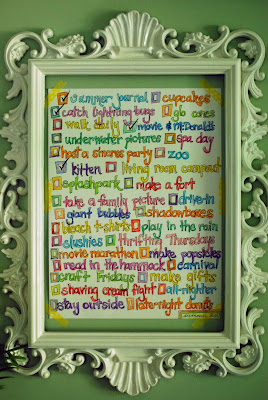 summer journal cupcakes
catch lightning bugs go canoe
walk daily movie & mcDonalds
underwater pictures spa day
host a s'mores party zoo
kitten living room campout
splashpark make a fort
take a family picture drive-in
giant bubbles shadowboxes
beach t-shirts play in the rain
slushies thrifting Thursdays
movie marathon make popsicles
read in the hammock carnival
craft Fridays make gifts
shaving cream fight all-nighter
stay outside late-night donuts